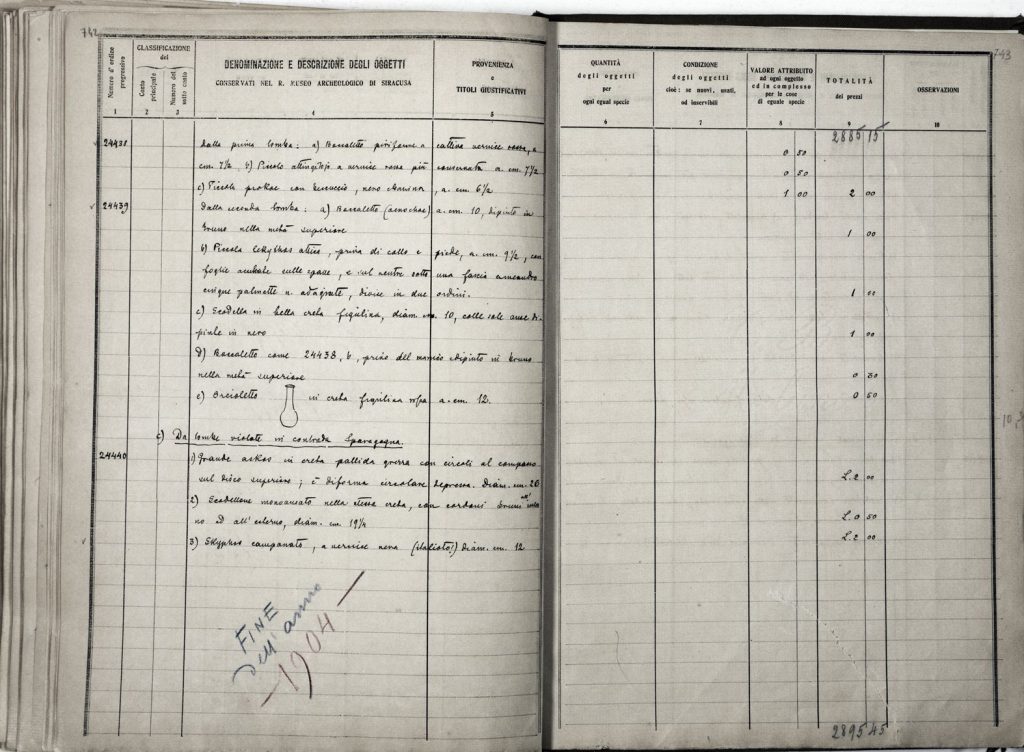 742
Numero d'ordine progressivo
CLASSIFICAZIONE
del
Conto principale
Numero del sotto conto
DENOMINAZIONE E DESCRIZIONE DEGLI OGGETTI
CONSERVATI NEL R. MUSEO ARCHEOLOGICO DI SIRACUSA
PROVENIENZA
e
TITOLI GIUSTIFICATIVI
1 2 3 4 5
24438 dalla prima tomba: a) Boccaletto piriforme a cattiva vernice rossa, a.
cm. 7½ b) Piccolo attingitojo a vernice rossa più conservata a. cm. 7½
c) Piccola prokoe con beccuccio, nero, a. cm. 6½
24439 Dalla seconda tomba: a) Boccaletto (oenochoe) a. cm. 10, dipinto in
bruno nella metà superiore
b) Piccola lekythos attica, priva di collo e piede, a. cm. 9½, con
foglie sulle spalle, e sul ventre sotto una fascia
cinque palmette n. adagiate, divise in due ordini.
c) Scodella in bella creta figulina, diam. cm. 10, colle sole anse di-
pinte in nero
d) Boccaletto come 24438, b, privo del manico dipinto in bruno
nella metà superiore
e) Orcioletto in creta figulina rossa a. cm. 12.
c) Da tombe violate in contrada Sparagogna.
24440 1) Grande askos in creta pallida grezza con circoli al compasso
sul disco superiore; è di forma circolare depressa. Diam. cm. 20
2) Scodellone monoansato nella stessa creta, con cordoni bruni all' inter
no ed all' esterno, diam. cm. 19¼
3) Skyphos campanato, a vernice nera (italioto?) diam. cm. 12
FINE
dell' anno
— 1904 —
743
QUANTITÀ
degli oggetti
per
ogni egual specie
CONDIZIONE
degli oggetti
cioè: se nuovi, usati,
od inservibili
VALORE ATTRIBUITO
ad ogni oggetto
ed in complesso
per le cose
di eguale specie
TOTALITÀ
dei prezzi
OSSERVAZIONI
6 7 8 9 10
2885 15
0 50
0 50
1 00 2 00
1 00
1 00
1 00
0 80
0 50
L. 2 00
L. 0 50
L. 2 00
2895 45